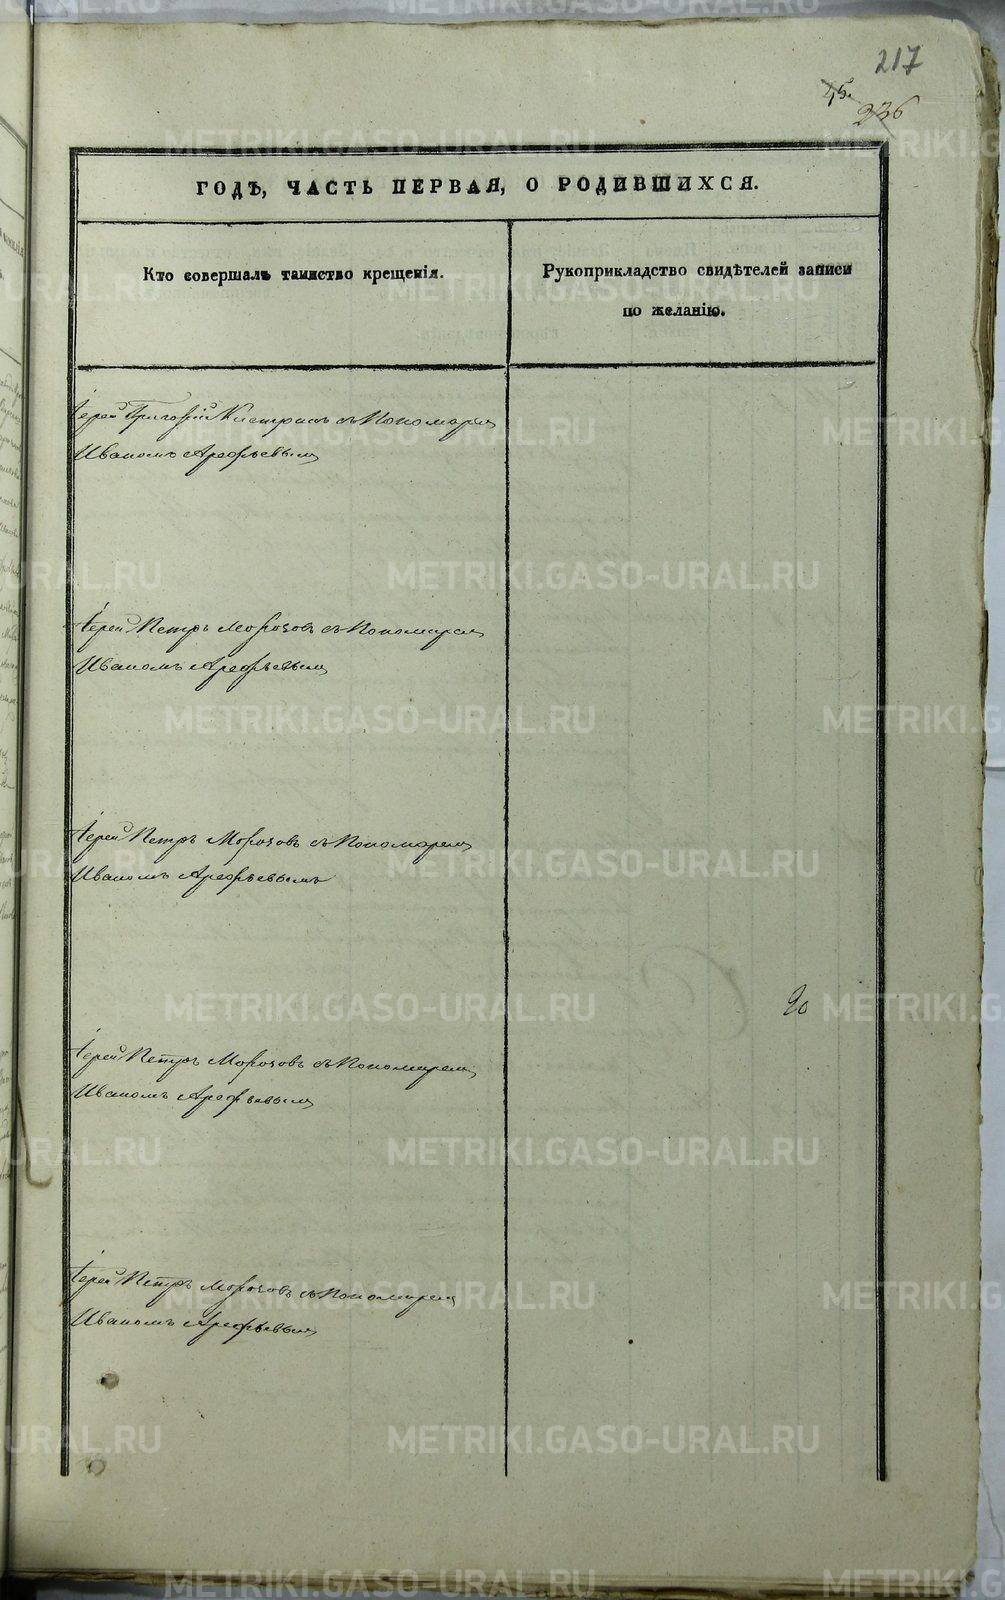 217
45.
236
ГОДЪ, ЧАСТЬ ПЕРВАЯ, О РОДИВШИХСЯ.
Кто совершалъ таинство крещенія.
Рукоприкладство свидѣтелей записи
по желанію.
Іерей Григорій съ Пономарем
Иваномъ Арефьевым
Іерей Петръ Морозовъ съ Пономарем
Иваномъ Арефьевым
Іерей Петръ Морозовъ съ Пономарем
Иваномъ Арефьевымъ
Іерей Петръ Морозовъ съ Пономарем
Иваномъ Арефьевым
Іерей Петръ Морозовъ съ Пономарем
Иваномъ Арефьевым
METRIKI.GASO-URAL.RU